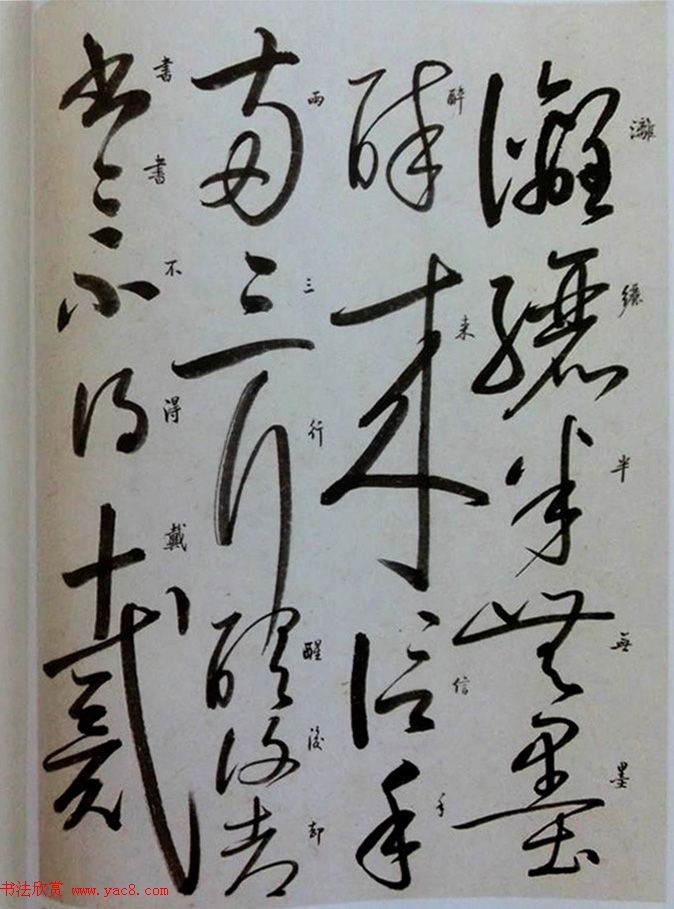 灕纚半無墨
醉來信手
兩三行醒後却
書書不得戴
书法欣赏 www.yac8.com